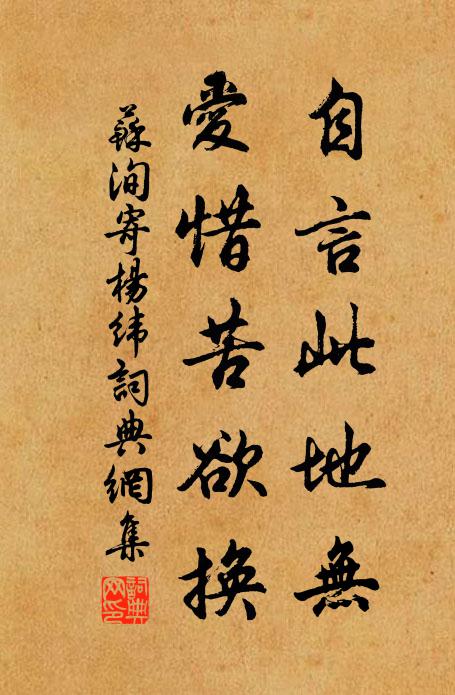 自言此地無
愛惜苦欲換
蘇洵寄楊緯詞典網集
詞典
網印